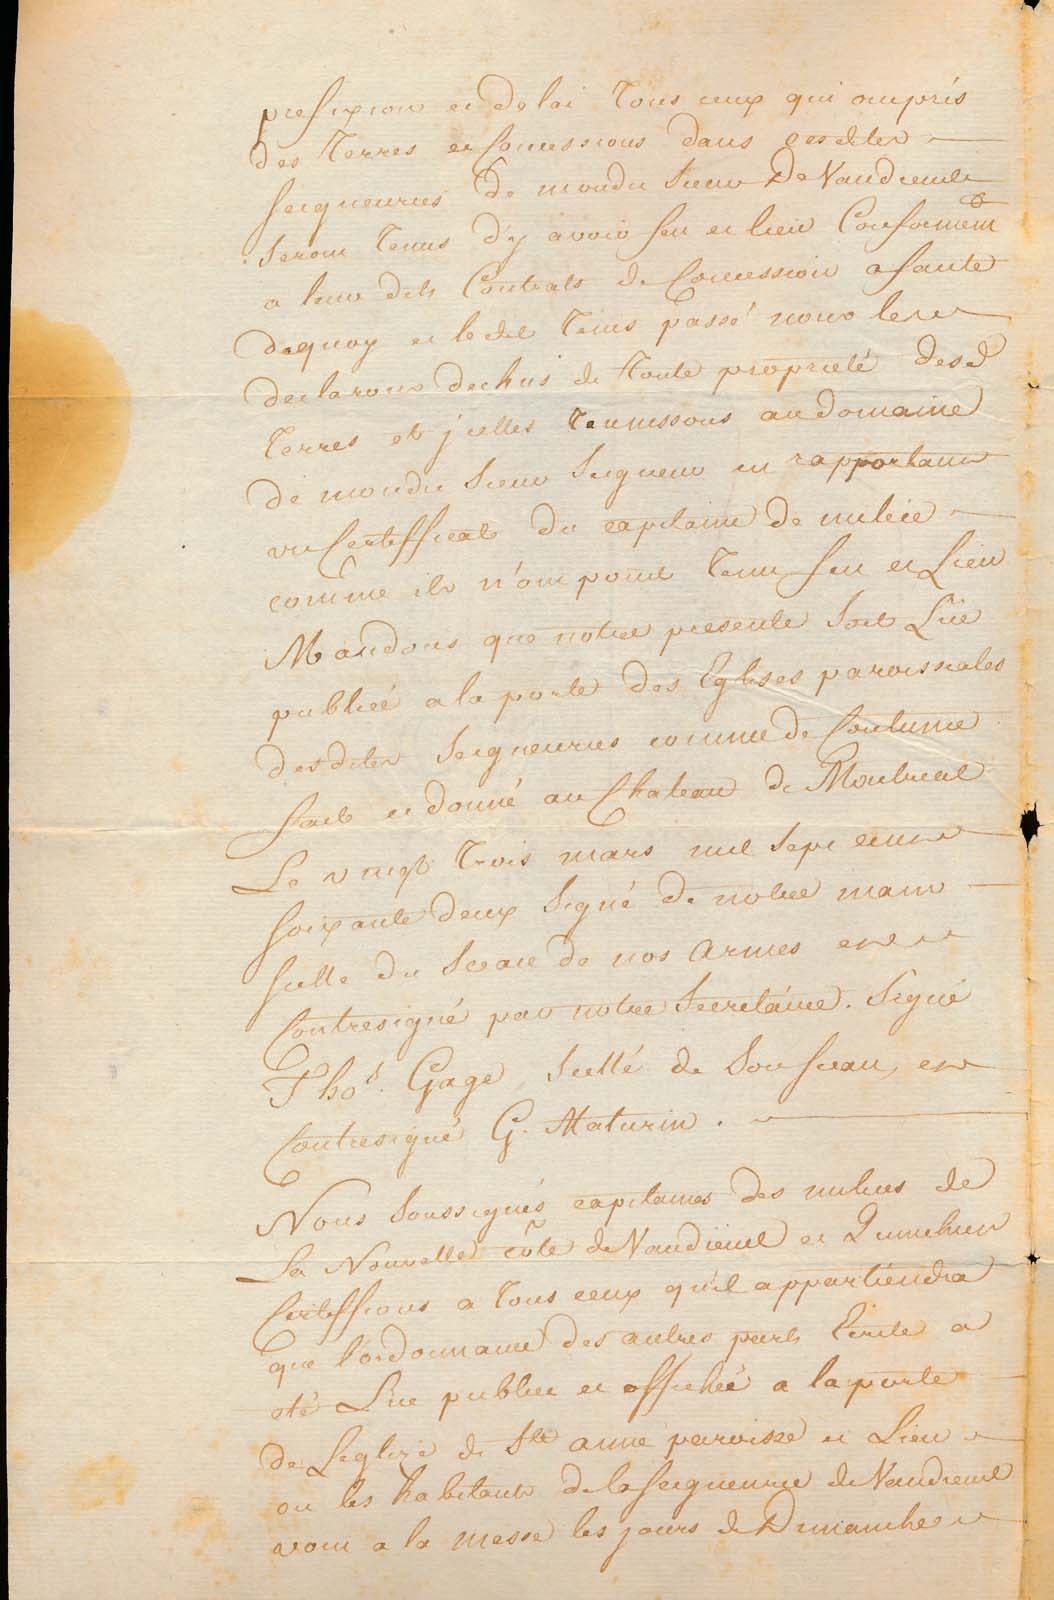 prefixion et delai Tous ceux qui ont pris
des Terres et Concessions dans cesdites
seigneuries De mondit Sieur De Vaudreuil
Seront Tenus d'y avoir feu et lieu Conformem
a leur dits Contrats de Concession a faute
dequoy et ledit Tems passé nous les
declarons dechus de Toute proprieté desd
Terres et jcelles reunissons au domaine
de mondit Sieur Seigneur en rapportant
un Certifficat du capitaine de milice
comme ils n'ont point Tenu feu et Lieu
Mandons que notre presente Soit Lüe
publiée a la porte des Eglises paroissiales
desdites Seigneuries comme de Coutume
fait et donné au Chateau de Montreal
Le vingt Trois mars mil Sept cent
soixante deux Signé de notre main
scellé du Sceau de nos Armes et
Contresigné par notre Secretaire. Signé
Thos. Gage, Scellé de Son Sceau, et
Contresigné G. Maturin.
Nous Soussignés capitaines des milices de
La Nouvelle côte de Vaudreuil et
Certiffions a Tous ceux qu'il appartiendra
que l'ordonnance des autres parts Ecrite a
eté Lüe publiée et affichée a la porte
de Leglise de Ste anne paroisse et Lieu
ou les habitants de la seigneurie de Vaudreuil
vont a la messe les jours de Dimanche